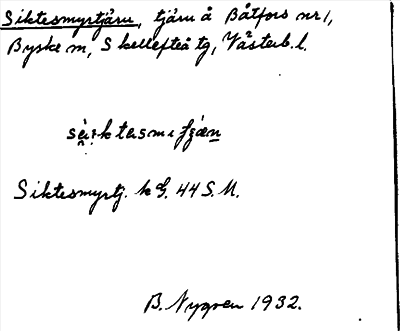 Siktesmyrtjärn, tjärn å Båtfors nr 1,
Byske sn, Skellefteå tg, Västerb. l.
Siktesmyrtj. k G. 44 S.M.
B. Nygren 1932.